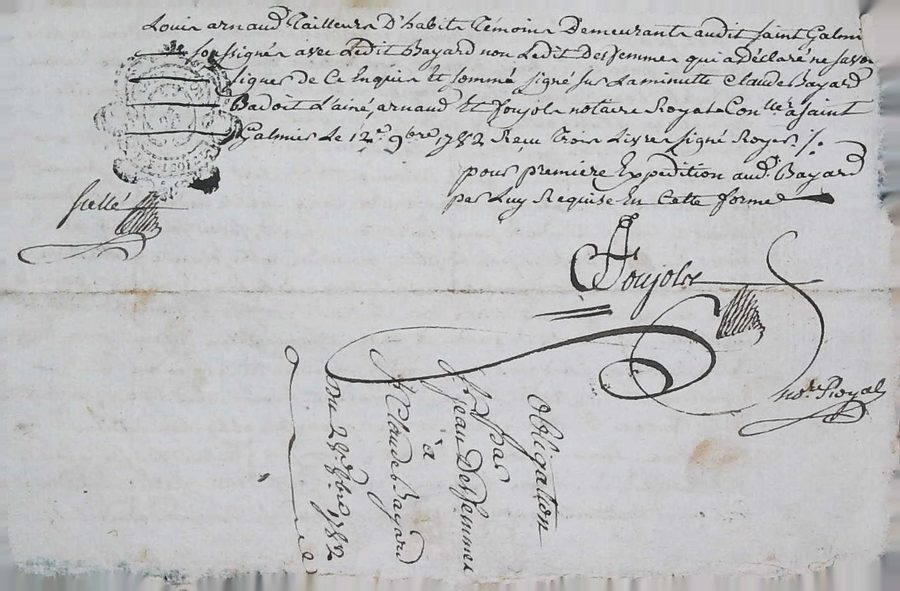 Louis arnaud Tailleurs D'habits Témoins Demeurants audit saint Galmi
soussignés avec Ledit Bayard non Ledit Desfemmes qui a Déclaré ne savoir
signer de Ce Enquis Et sommé signé sur La minutte Claude Bayard
Badoit L'ainé, arnaud Et foujols notaire Royal Con.ller a saint
Galmier Le 12.e 9bre 1782 Reçu Trois Livres signé Royer ./.
pour première Expédition aud.t Bayard
par Luy Requise En Cette forme
scellé
foujols
not.re Royal
Obligation
par
S.r Jean Desfemmes
à
S.r Claude Bayard
Du 9bre 1782